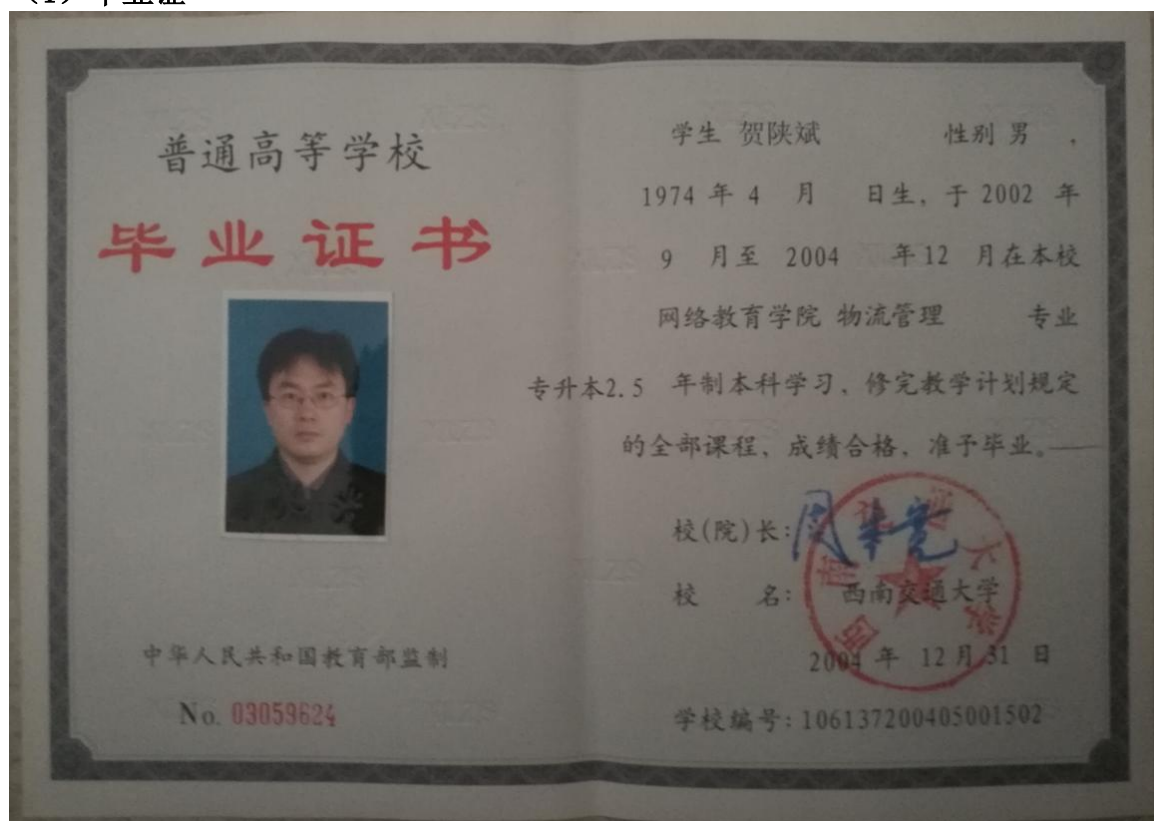 （1）毕业证
普通高等学校
毕业证书
中华人民共和国教育部监制
No. 03059624
学生 贺陕斌 性别 男 ，
1974 年 4 月 日生，于 2002 年
9 月至 2004 年 12 月在本校
网络教育学院 物流管理 专业
专升本2.5 年制本科学习，修完教学计划规定
的全部课程、成绩合格，准予毕业。
校(院)长：
校 名： 西南交通大学
2004 年 12 月 31 日
学校编号：106137200405001502
西南交通大学